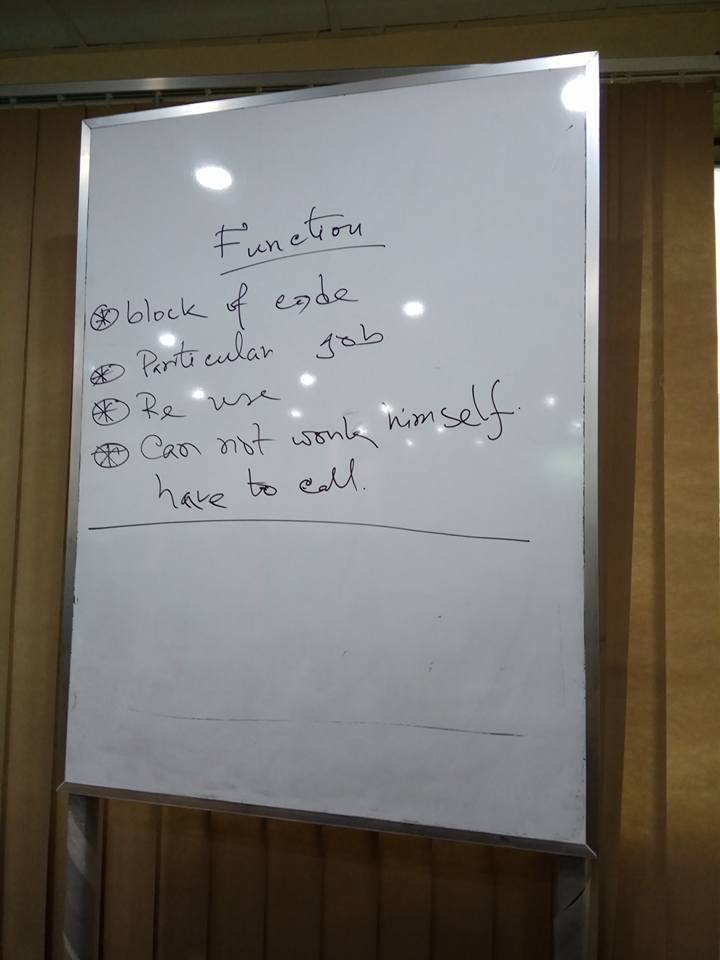 Function
block of code
Particular Job
Re use
Can not work himself.
have to call.